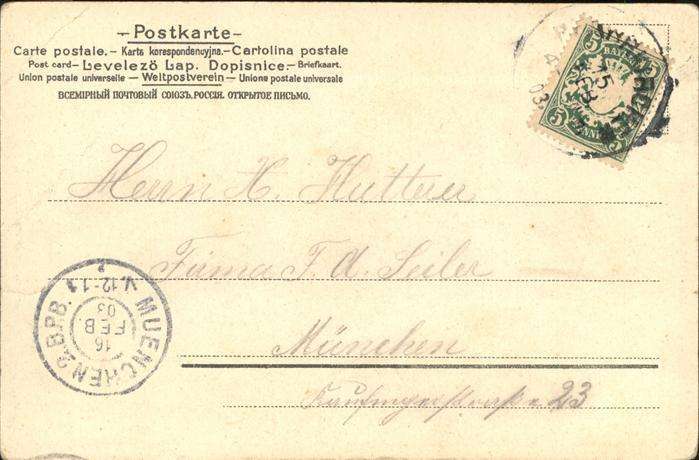 Postkarte
Carte postale. – Karta korespondencyjna. – Cartolina postale
Post card – Levelezö Lap. Dopisnice. – Briefkaart.
Union postale universelle – Weltpostverein – Unione postale universale
ВСЕМІРНЫЙ ПОЧТОВЫЙ СОЮЗЪ. РОССІЯ. ОТКРЫТОЕ ПИСЬМО.
5 BAYERN 5
5 PFENNIG
15 FEB
03
Herrn H. Hutterer
Firma F. A. Seiler
München
Kaufingerstrasse 23
MUENCHEN 2. B.P.B.
16
FEB.
03
V. 12-1